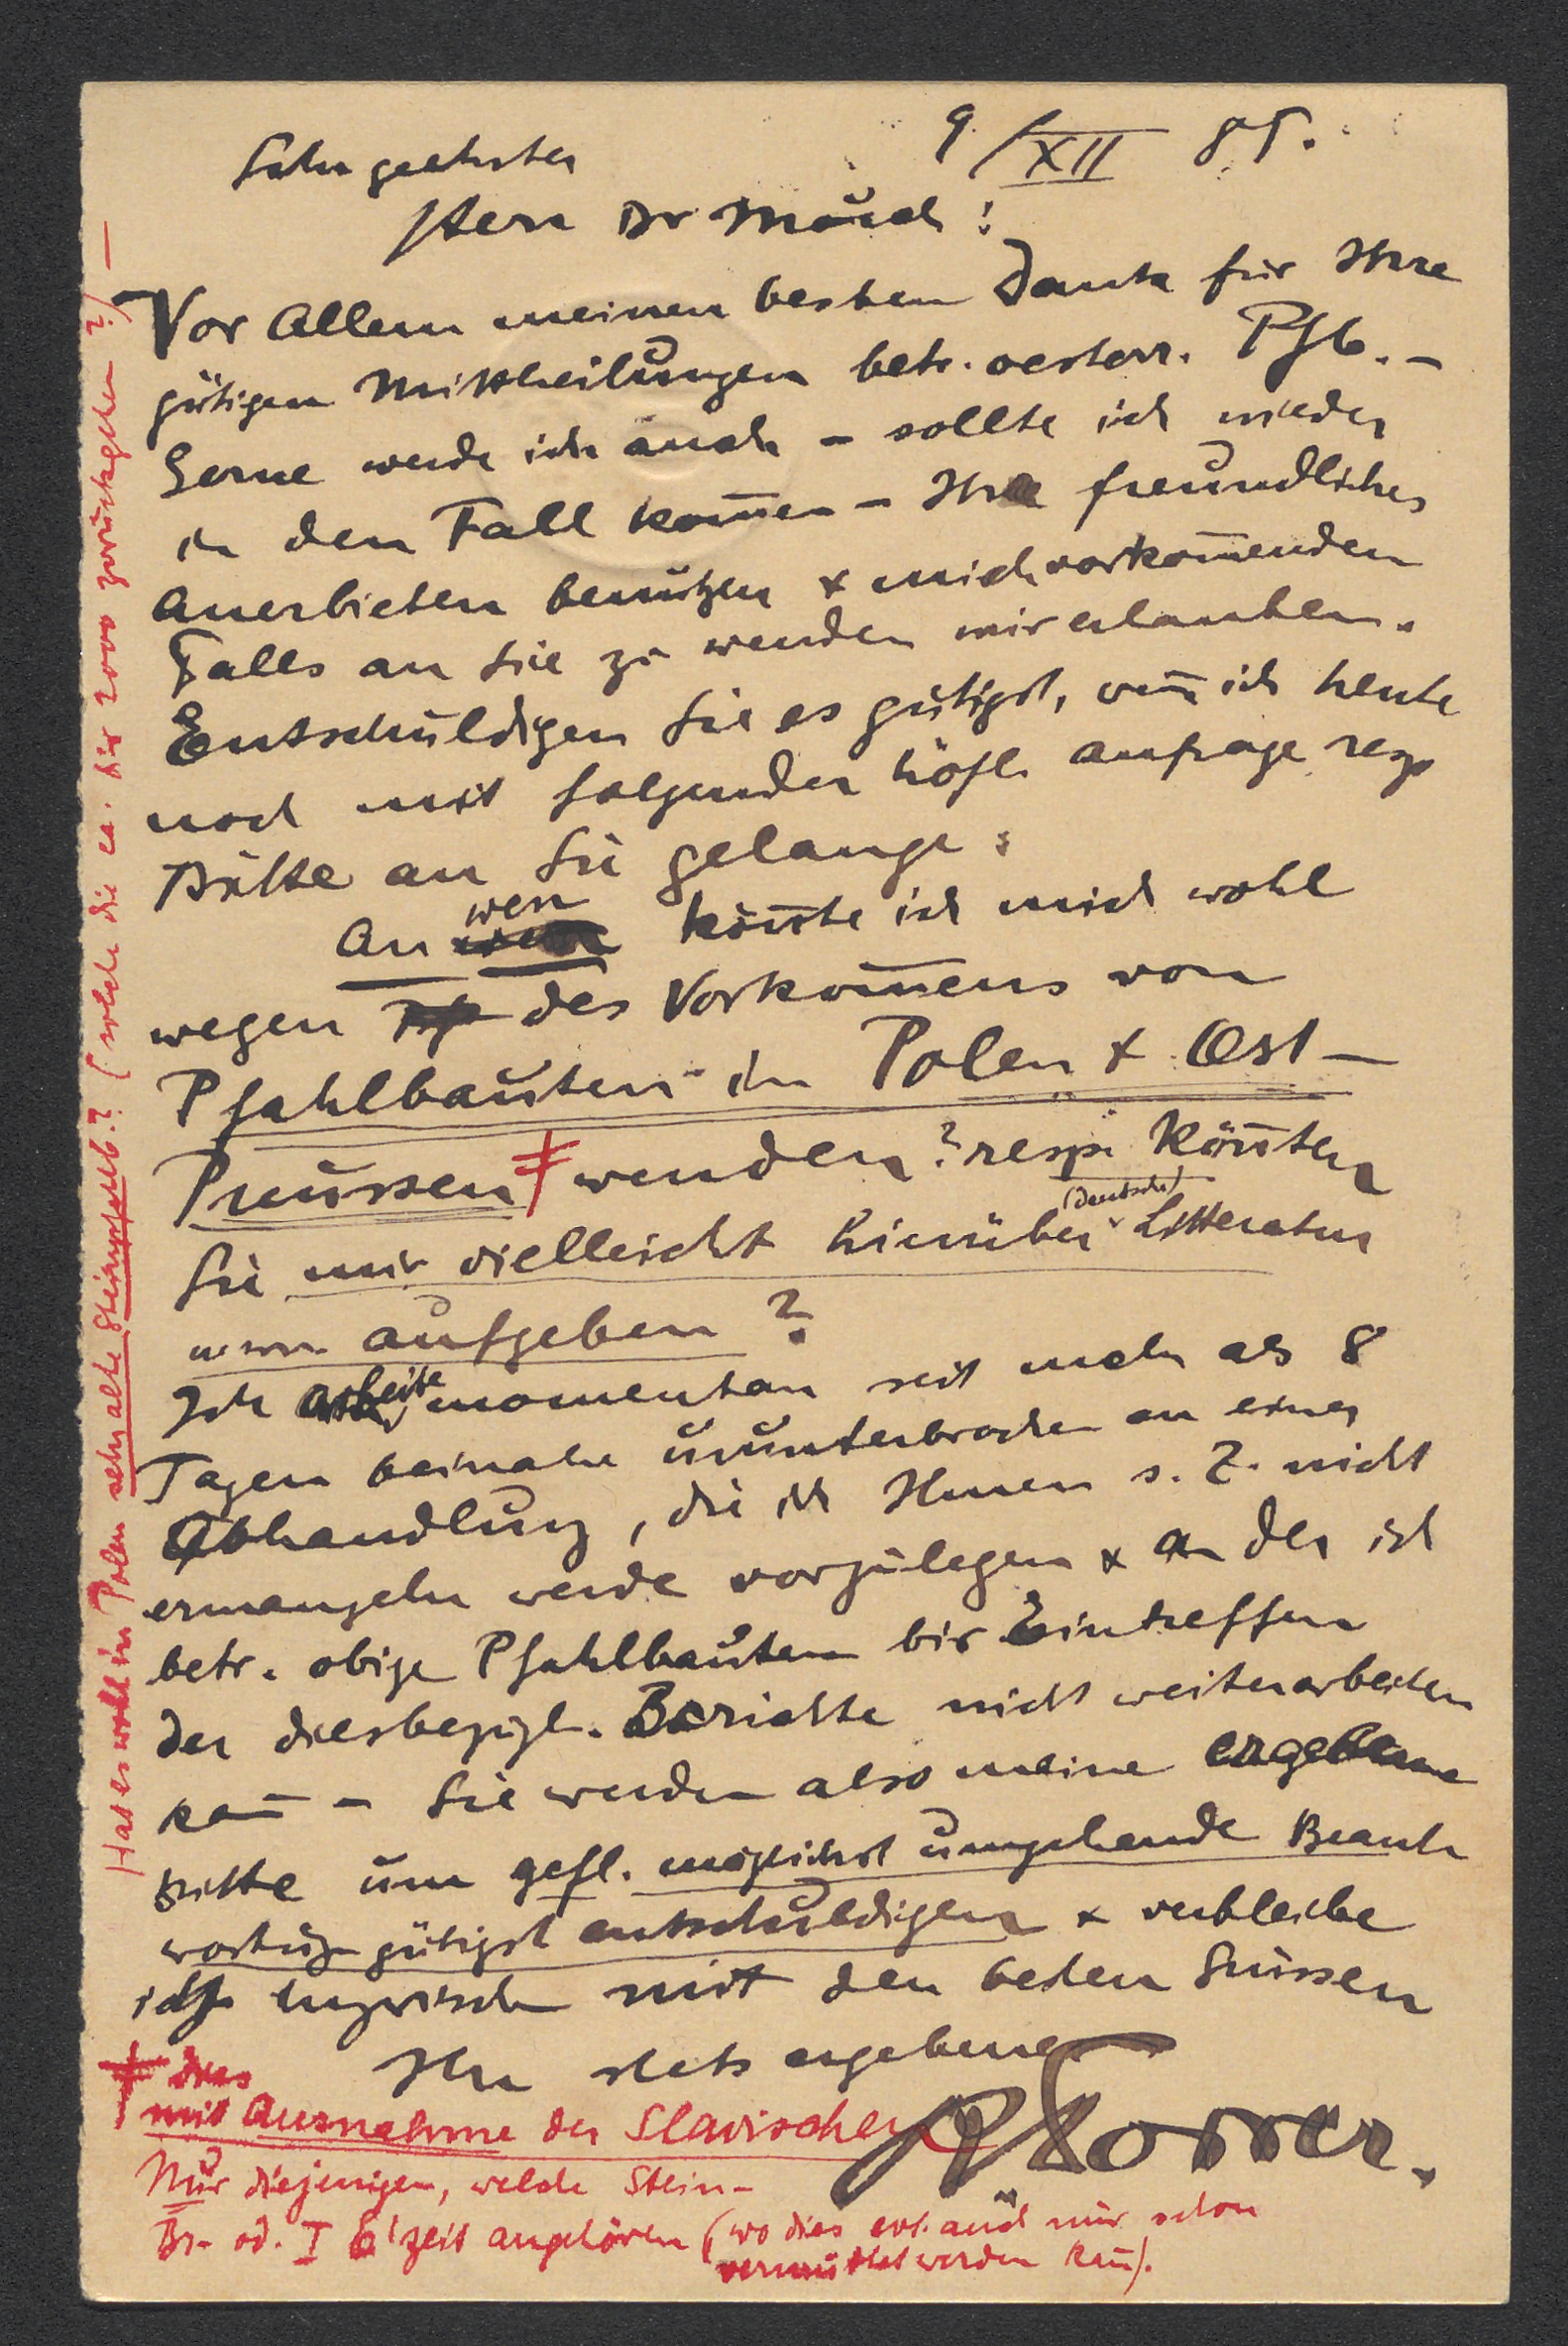 9./XII 85.
Sehr geehrter
Herr Dr Much!
Vor Allem meinen besten Dank für Ihre
gütigen Mittheilungen betr. oesterr. Pfb. –
Gerne werde ich auch – sollte ich wieder
in den Fall kom̅en – Ihr freundliches
Anerbieten benützen & mich vorkom̅enden
Falls an Sie zu wenden mir erlauben.
Entschuldigen Sie es gütigst, wen̅ ich heute
noch mit folgender höfl. Anfrage resp
Bitte an Sie gelange:
An wen kön̅te ich mich wohl
wegen des Vorkom̅ens von
Pfahlbauten in Polen & Ost-
Preussen ‡ wenden? resp. Kön̅ten
Sie mir vielleicht hierüber (deutsche) Litteratur
aufgeben?
Ich arbeite momentan seit mehr als 8
Tagen beinahe ununterbrochen an einer
Abhandlung, die ich Ihnen s. Z. nicht
ermangeln werde vorzulegen & an der ich
betr. obige Pfahlbauten bis Eintreffen
der diesbezügl. Berichte nicht weiterarbeiten
kan̅ – Sie werden also meine ergebene
Bitte um gefl. möglichst umgehende Beant-
wortung gütigst entschuldigen & verbleibe
ich inzwischen mit den besten Grüssen
Ihr stets ergebener
R Forrer.
‡ dies
mit Ausnahme der Slavischen
Nur diejenigen, welche Stein-
Br. od. I E'zeit angehören (wo dies evt. auch nur schon
vermuthet werden kan̅).
Hat es wohl in Polen sehr alte Steinpfalb.? (welche die ca. bis 2000 zurückgehen?) –